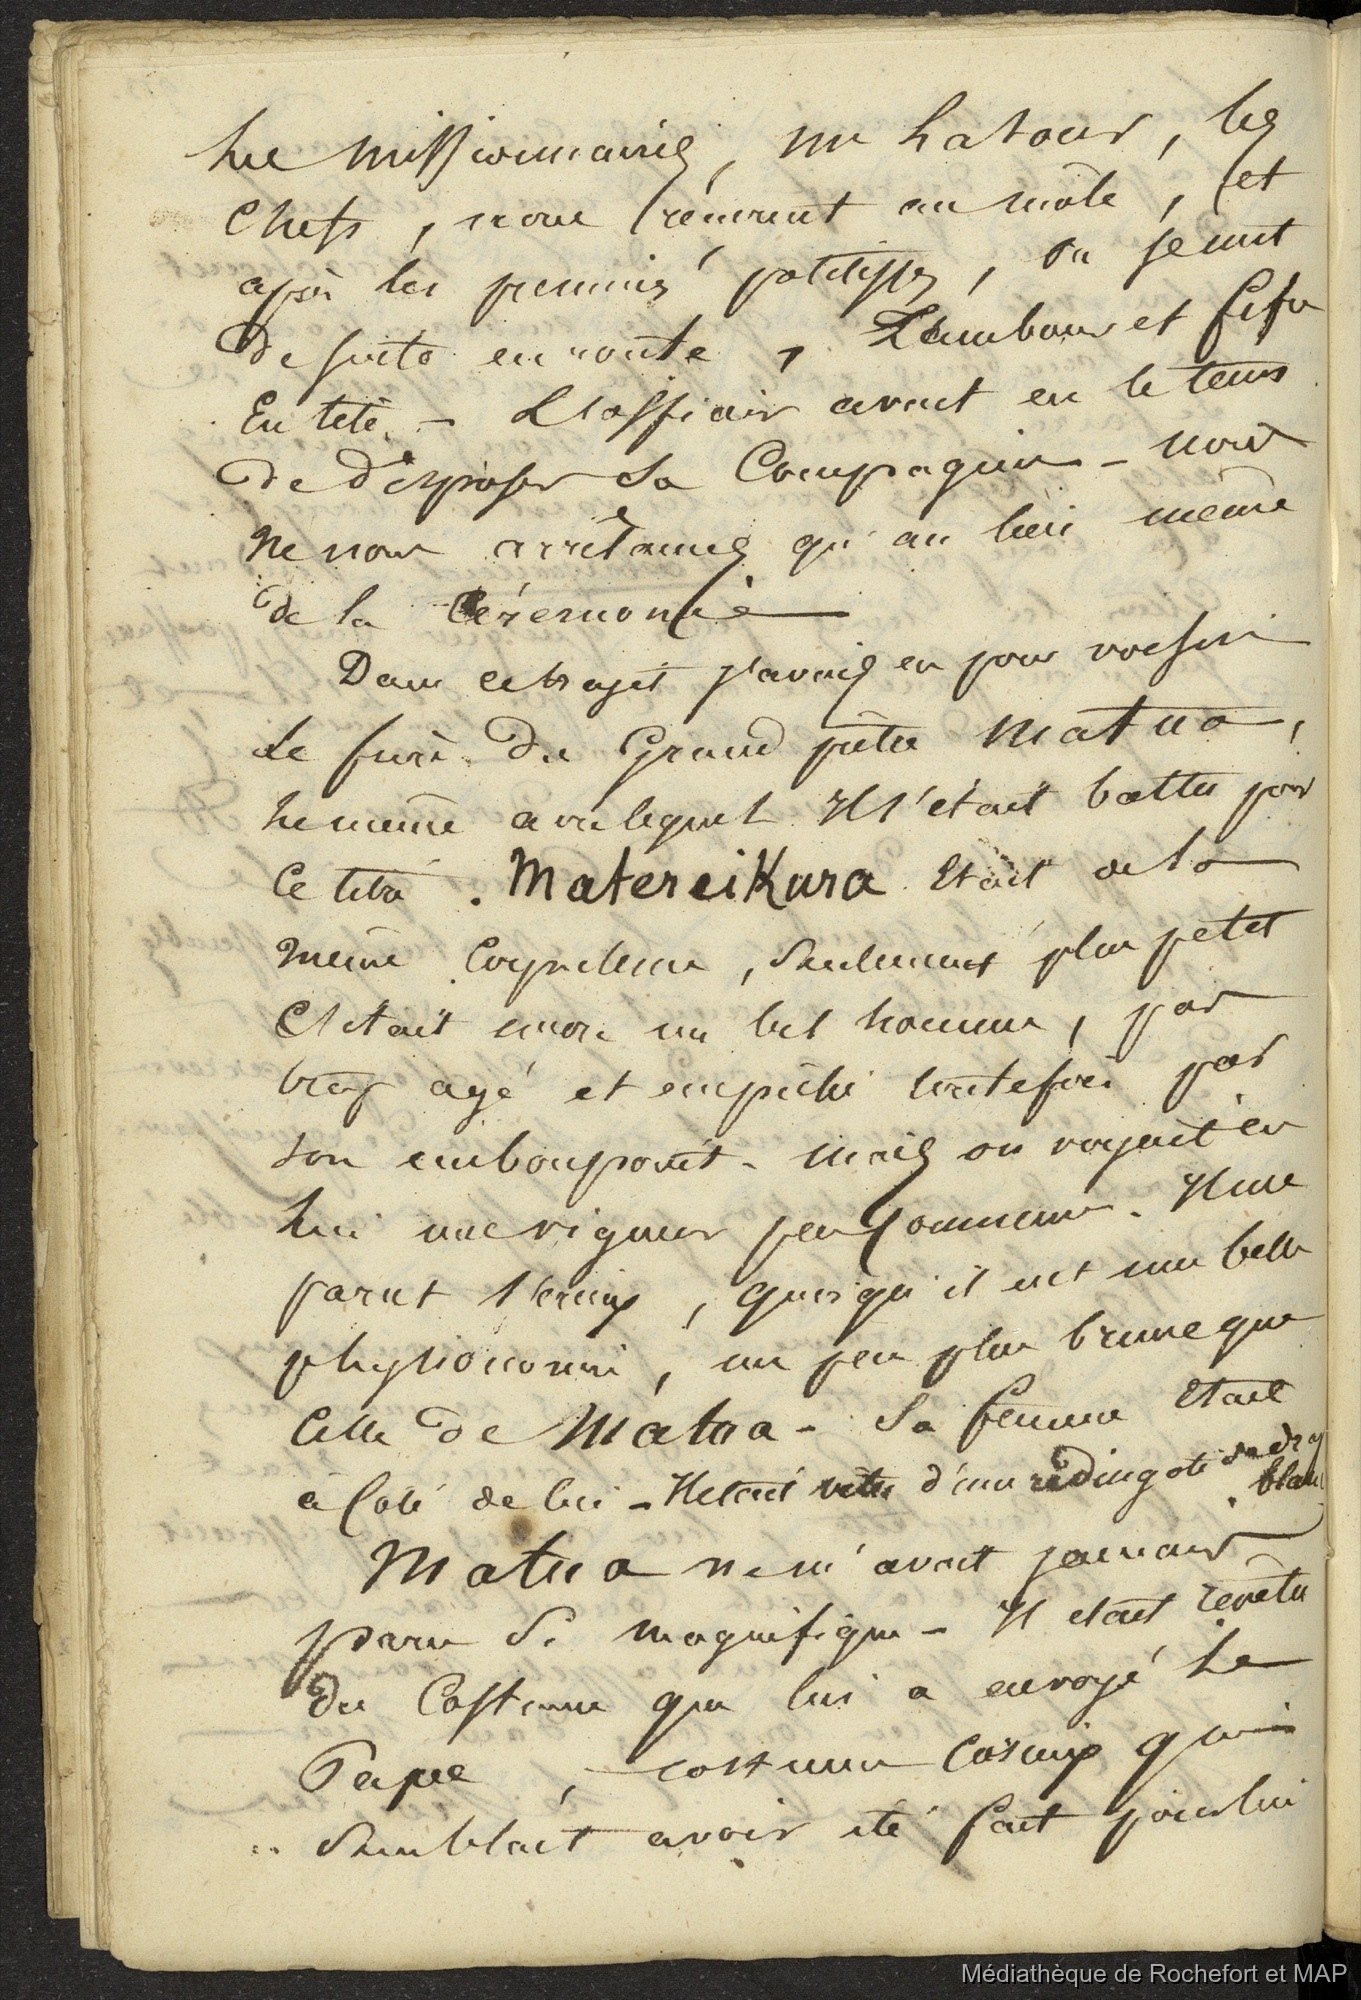 Les missionnaires, mr Latour, les
Chefs, nous reçurent au môle, et
après les premières politesses, on se mit
de suite en route, Tambour et fifre
En tête. - L'officier avait eu le tems
de disposer sa Compagnie - nous
ne nous arrêtames qu'au lieu même
de la Cérémonie
Dans ce trajet j'avais eu pour voisin
Le frère du Grand prêtre Matua,
Le même avec lequel Il s'était battu pour
Ce titre. Matereikura Etait de la
même Corpulence, Seulement plus petit
C'etait encore un bel homme, pas
trop agé et empêché toutefois par
son embonpoint. mais on voyait en
Lui une vigueur peu commune. Il me
parut sérieux, quoiqu'il eut une belle
physionomie, un peu plus brune que
Celle de Matua - Sa femme Etait
à coté de lui - Il etait vêtu d'une redingote de drap
blanc
Matua ne m'avait jamais
paru Si magnifique - Il etait revêtu
du Costume que lui a envoyé Le
Pape, costume qui
Semblait avoir été fait pour lui
Médiathèque de Rochefort et MAP